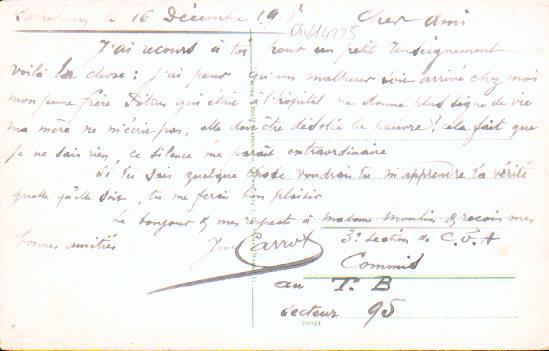 Sarrebourg le 16 Décembre 1918 Cher Ami
J'ai recours à toi pour un petit renseignement
voilà la chose : j'ai peur qu'un malheur soit arrivé chez moi
mon jeune frère qui était à l'hôpital ne donne plus signe de vie
ma mère ne m'écrit pas, elle doit être désolée la pauvre ! cela fait que
je ne sais rien, ce silence me paraît extraordinaire
Si tu sais quelque chose voudrais tu m'apprendre la vérité
quelle qu'elle soit, tu me feras bon plaisir
Le bonjour & mes respects à madame Moulin & reçois mes
bonnes amitiés
Carrot
3e Section de C.O.A
Commis
au T. B
Secteur 95